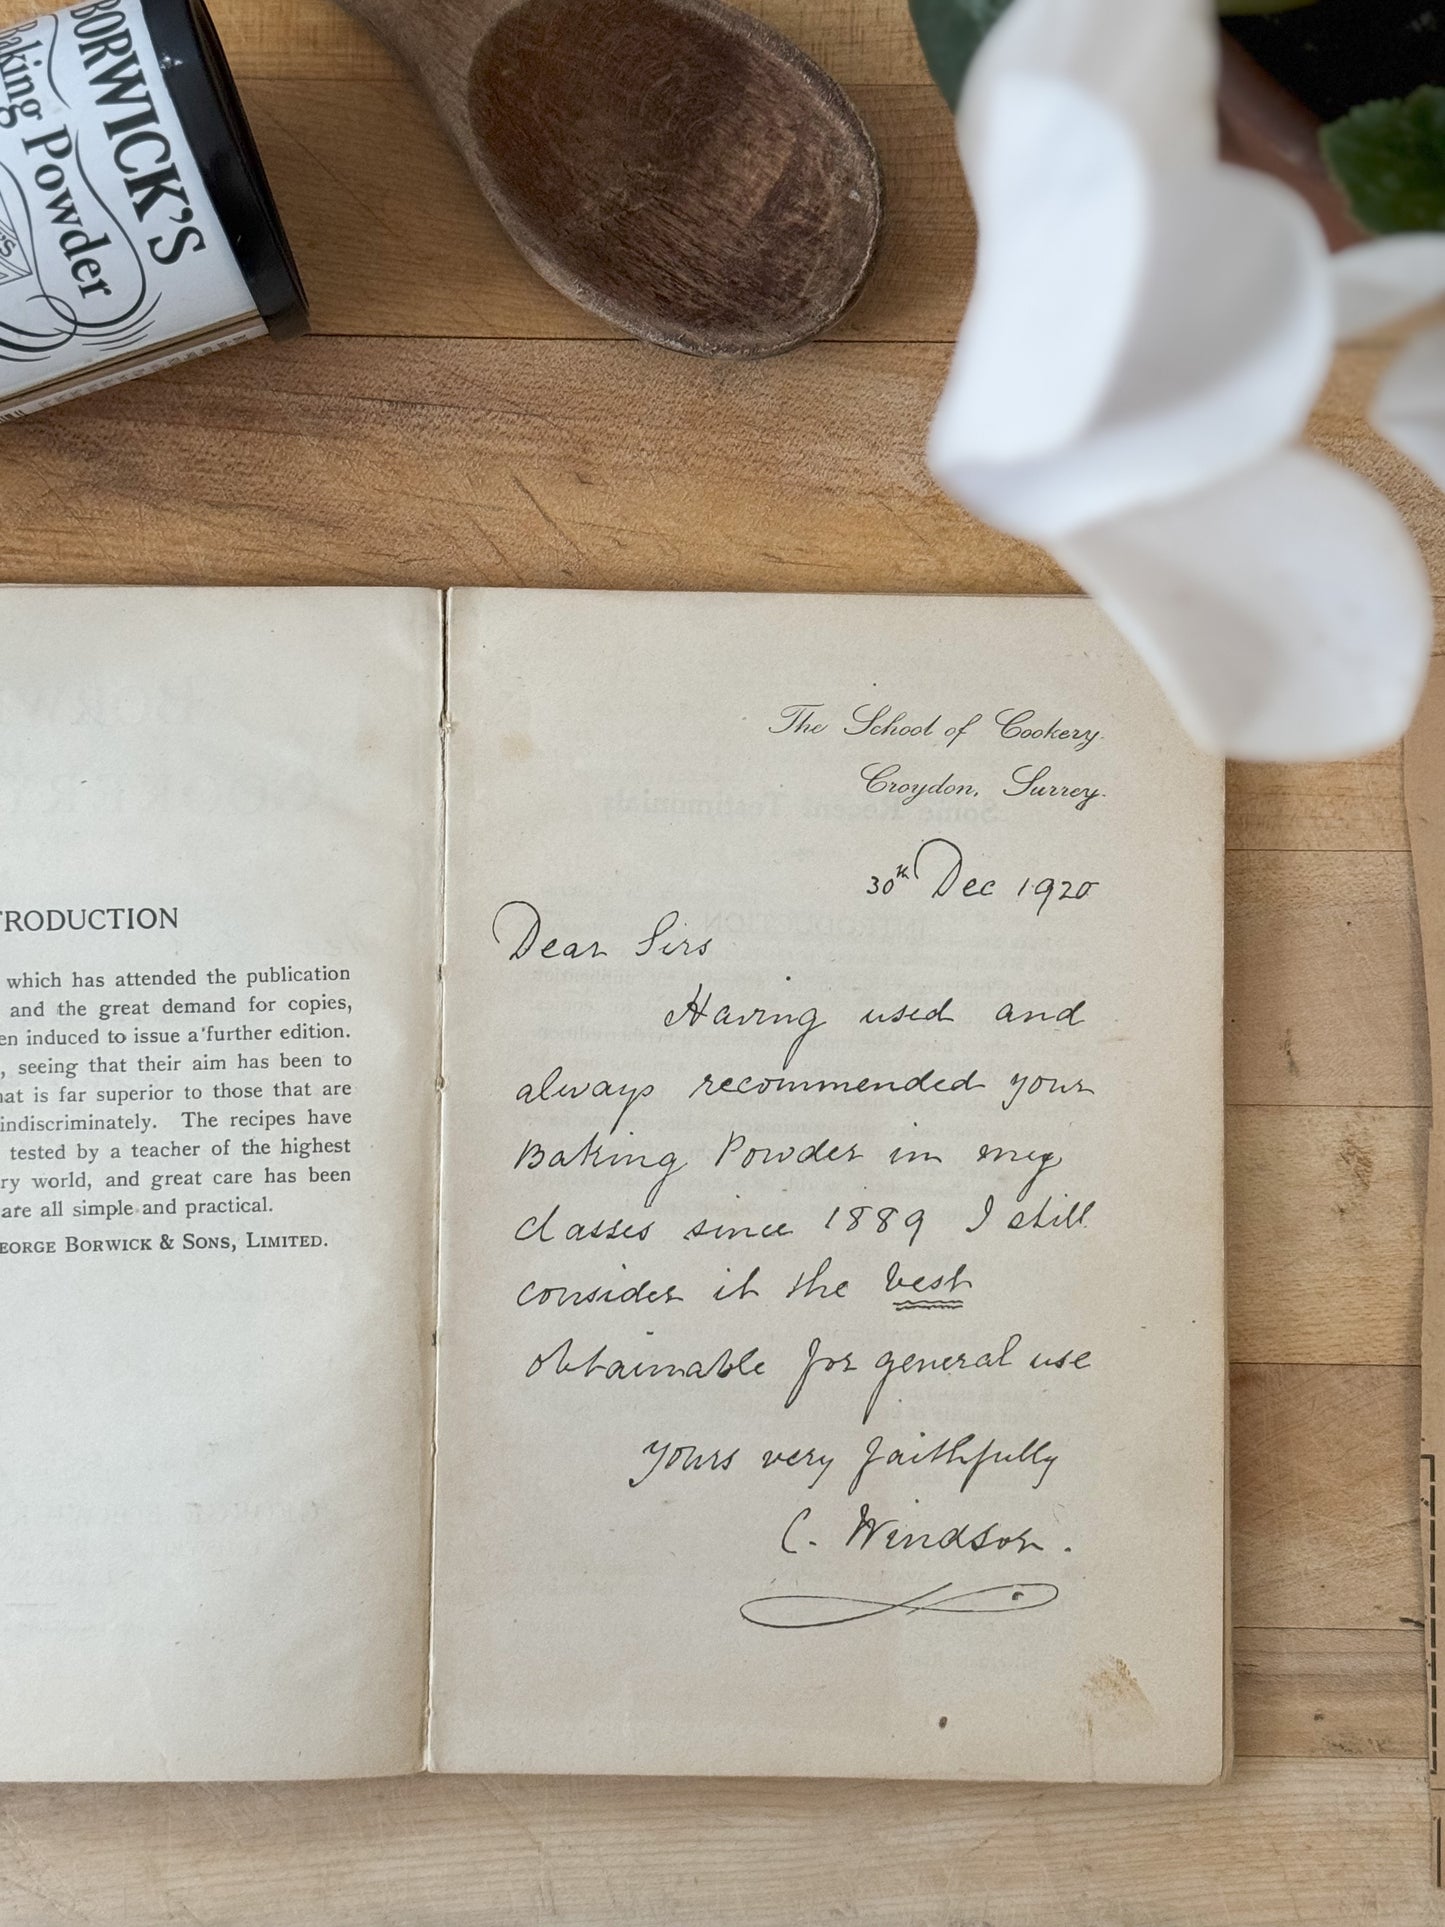 BORWICK'S
Baking Powder
TRODUCTION
which has attended the publication
and the great demand for copies,
en induced to issue a further edition.
, seeing that their aim has been to
hat is far superior to those that are
indiscriminately. The recipes have
tested by a teacher of the highest
ry world, and great care has been
are all simple and practical.
EORGE BORWICK & SONS, LIMITED.
The School of Cookery.
Croydon, Surrey.
30th Dec 1920
Dear Sirs
Having used and
always recommended your
Baking Powder in my
classes since 1889 I still
consider it the best
obtainable for general use
yours very faithfully
C. Windsor.